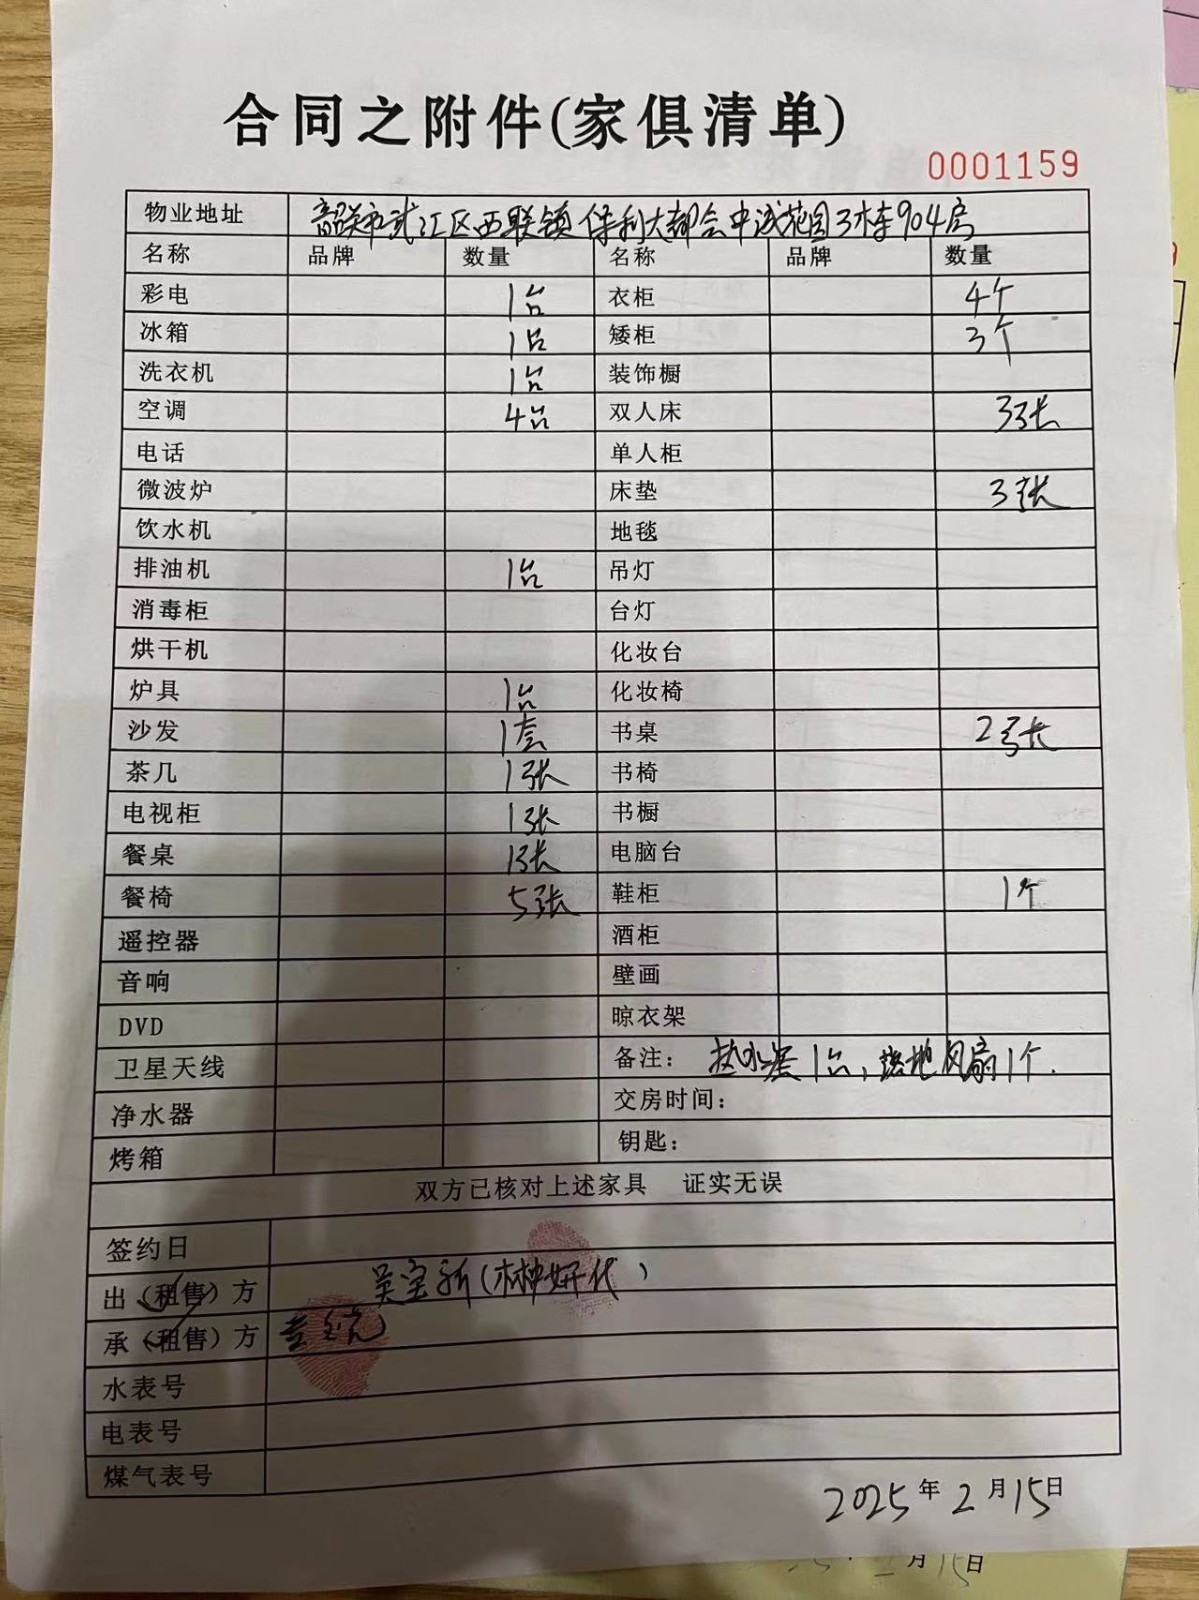 合同之附件(家俱清单)
0001159
物业地址 韶关市武江区西联镇保利大都会中诚花园3栋904房
名称 品牌 数量 名称 品牌 数量
彩电 1台 衣柜 4个
冰箱 1台 矮柜 3个
洗衣机 1台 装饰橱
空调 4台 双人床 3张
电话 单人柜
微波炉 床垫 3张
饮水机 地毯
排油机 1台 吊灯
消毒柜 台灯
烘干机 化妆台
炉具 1台 化妆椅
沙发 1套 书桌 2张
茶几 1张 书椅
电视柜 1张 书橱
餐桌 1张 电脑台
餐椅 5张 鞋柜 1个
遥控器 酒柜
音响 壁画
DVD 晾衣架
卫星天线 备注: 热水器1台,落地风扇1个.
净水器 交房时间:
烤箱 钥匙:
双方已核对上述家具 证实无误
签约日
出(租售)方 吴宝新(林 代)
承(租售)方
水表号
电表号
煤气表号
2025年2月15日
月15日